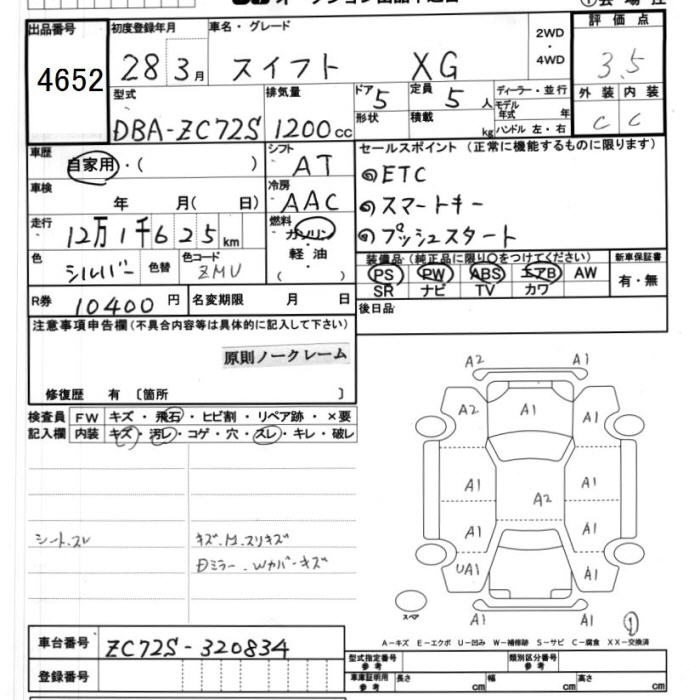 出品番号 4652
初度登録年月 28 3月
車名・グレード スイフト XG
2WD ・ 4WD
評価点 3.5
型式 DBA-ZC72S
排気量 1200cc
ドア 5
形状
定員 5 人
積載 kg
ディーラー・並行
モデル年式 年
ハンドル 左・右
外装 内装
C C
車歴 自家用・( )
シフト AT
車検 年 月( 日)
冷房 AAC
走行 12万1千625km
燃料 ガソリン・軽油・( )
色 シルバー 色替 色コード ZMU
R券 10400円 名変期限 月 日
セールスポイント(正常に機能するものに限ります)
◎ETC
◎スマートキー
◎プッシュスタート
装備品(純正品に限り○をつけてください)
PS PW ABS エアB AW
SR ナビ TV カワ
新車保証書
有・無
後日品
注意事項申告欄(不具合内容等は具体的に記入して下さい)
原則ノークレーム
修復歴 有 〔箇所 〕
検査員 FW キズ・飛石・ヒビ割・リペア跡・×要
記入欄 内装 キズ・汚レ・コゲ・穴・スレ・キレ・破レ
シート.スレ
キズ.M.スリキズ
Dミラー.Wカバーキズ
A2 A1
A2 A1 A1
A1 A1
A2
A1 A1
UA1 A1
A1 A1
スペア
①
A-キズ E-エクボ U-凹み W-補修跡 S-サビ C-腐食 XX-交換済
車台番号 ZC72S-320834
登録番号
型式指定番号 参考
類別区分番号 参考
車庫証明用 参考 長さ cm 幅 cm 高さ cm